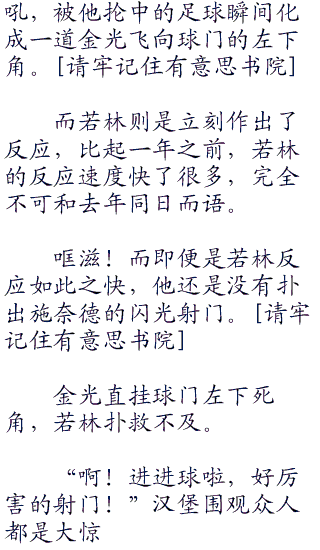 吼，被他抡中的足球瞬间化
成一道金光飞向球门的左下
角。[请牢记住有意思书院]
而若林则是立刻作出了
反应，比起一年之前，若林
的反应速度快了很多，完全
不可和去年同日而语。
哐滋！而即便是若林反
应如此之快，他还是没有扑
出施奈德的闪光射门。[请牢
记住有意思书院]
金光直挂球门左下死
角，若林扑救不及。
“啊！进进球啦，好厉
害的射门！”汉堡围观众人
都是大惊